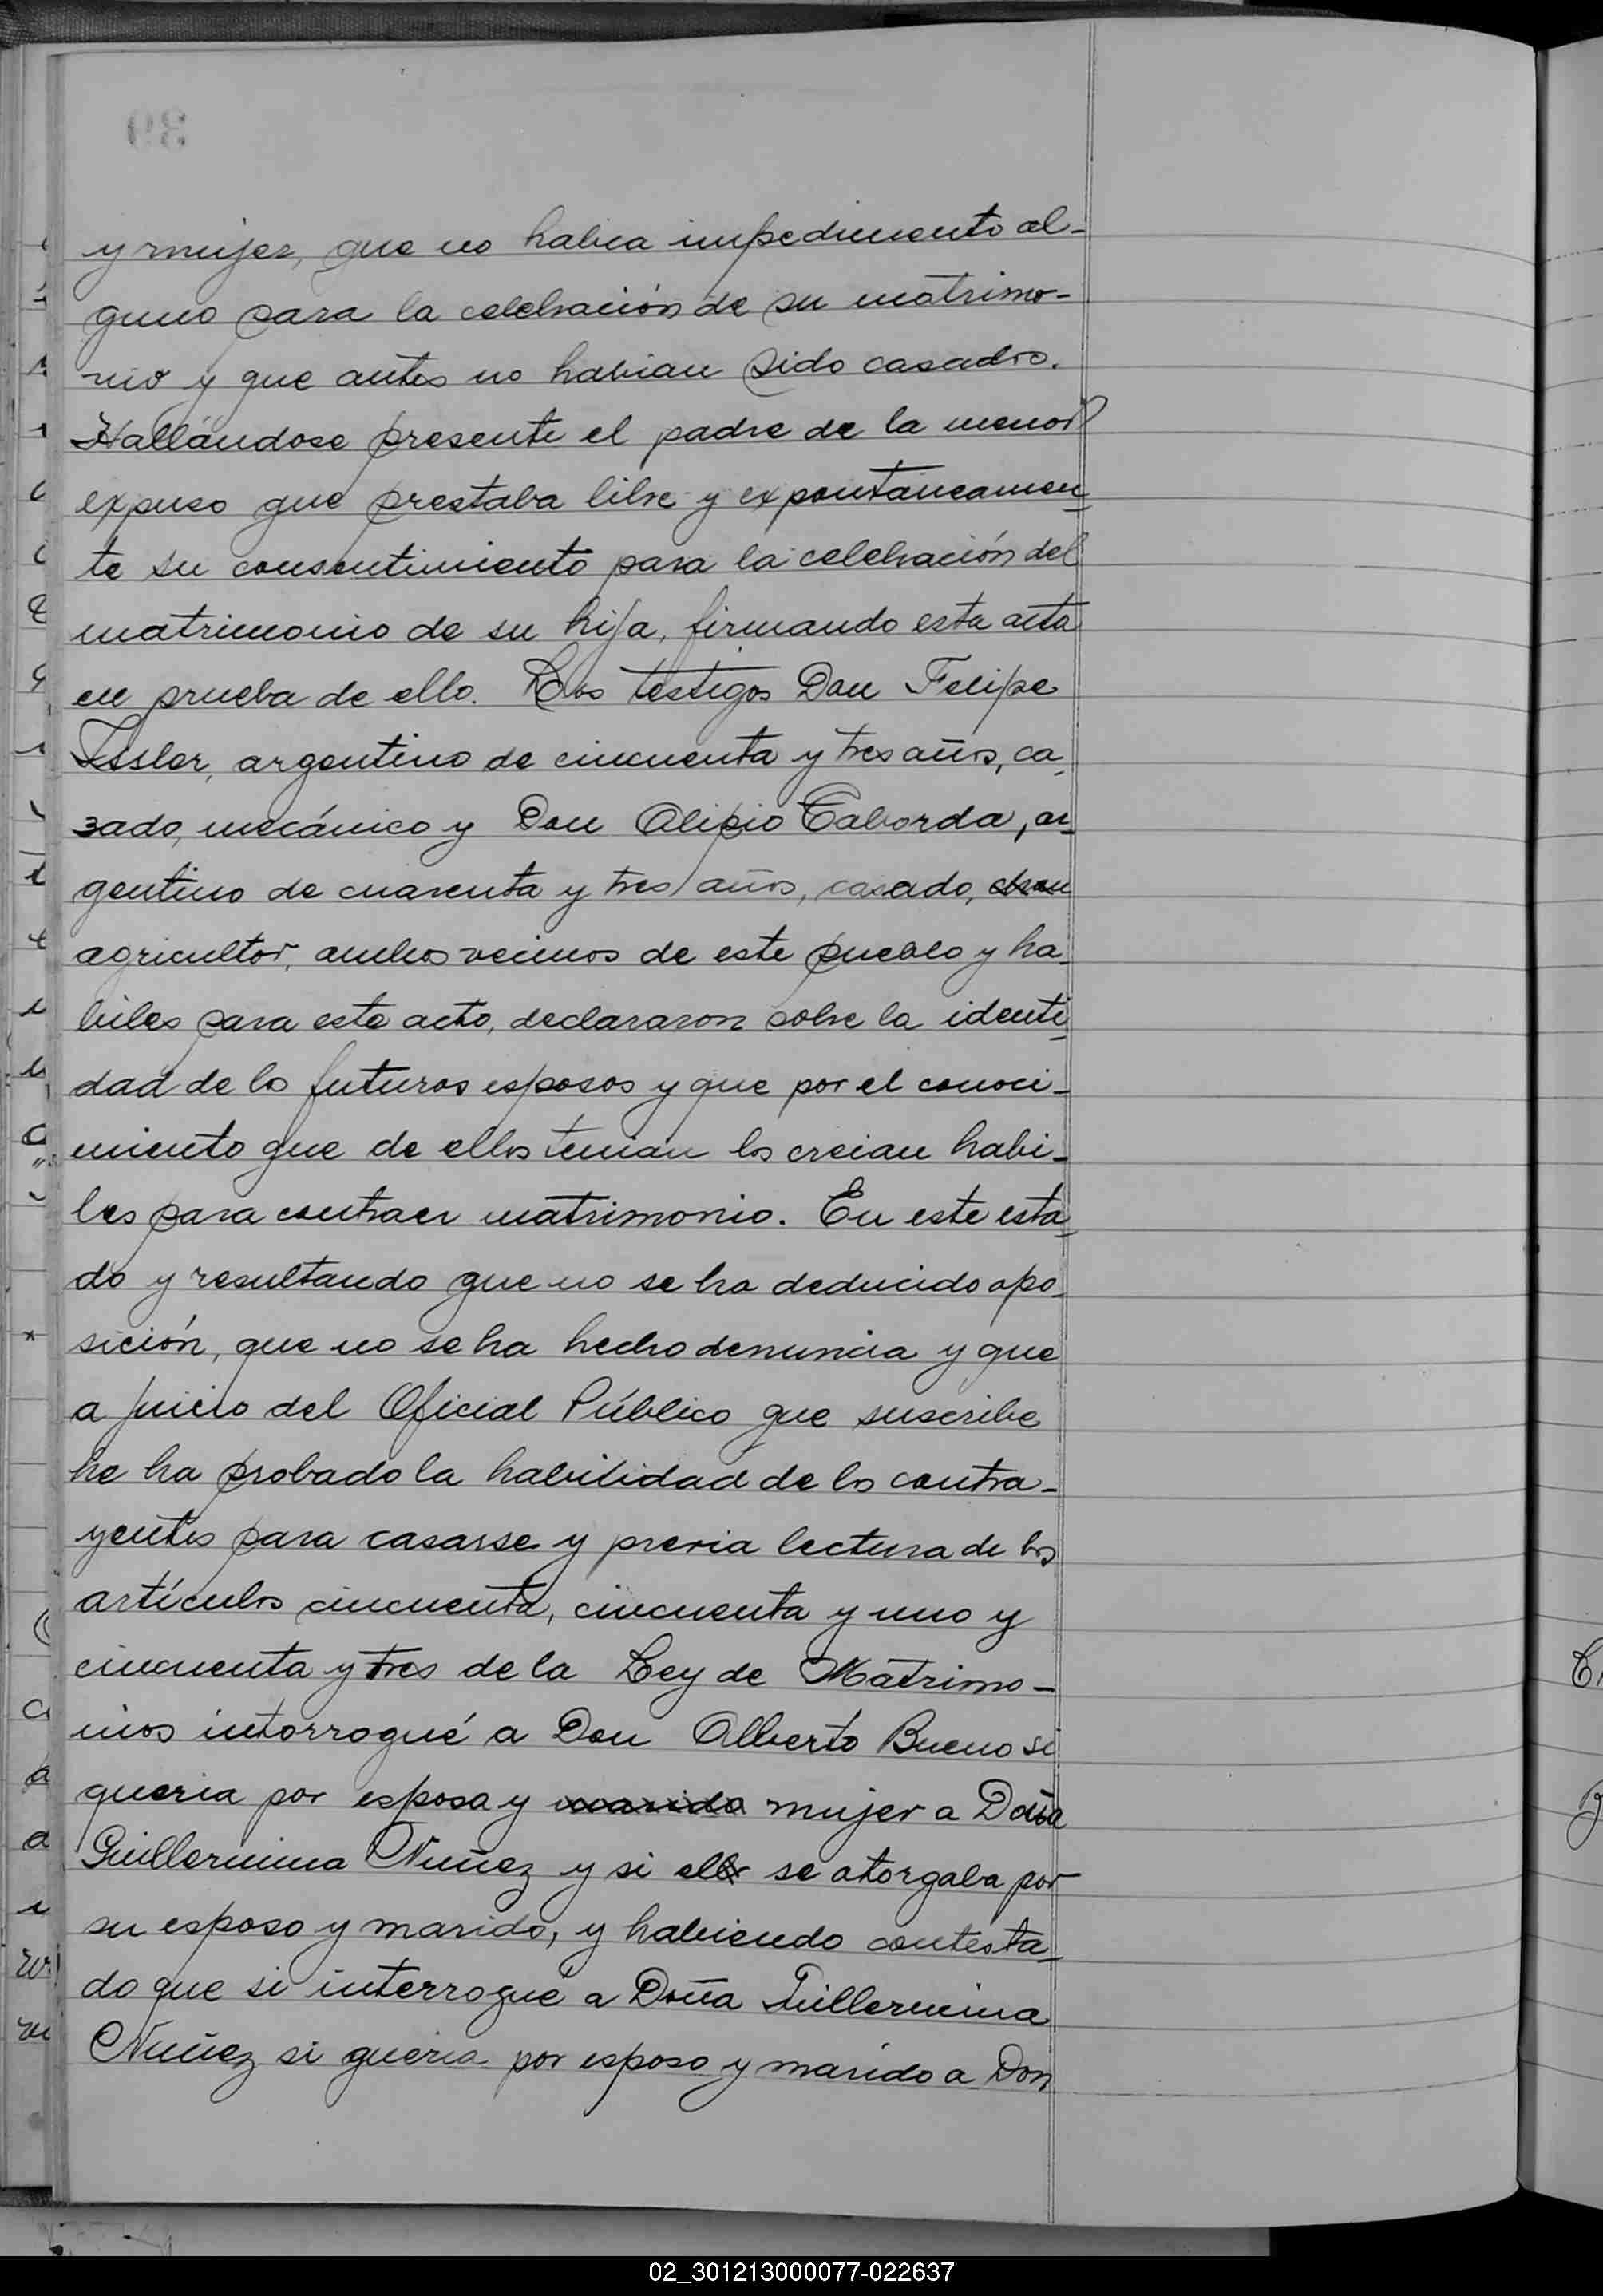 y mujer, que no habia impedimento al-
guno para la celebración de su matrimo-
nio y que antes no habian sido casados.
Hallándose presente el padre de la menor
expuso que prestaba libre y expontaneamen-
te su consentimiento para la celebración del
matrimonio de su hija, firmando esta acta
en prueba de ello. Los testigos Don Felipe
Issler, argentino de cincuenta y tres años, ca-
zado, mecánico y Don Alipio Taborda, ar-
gentino de cuarenta y tres años, casado,
agricultor, ambos vecinos de este pueblo y ha-
biles para este acto, declararon sobre la identi-
dad de los futuros esposos y que por el conoci-
miento que de ellos tenian los creian habi-
les para contraer matrimonio. En este esta-
do y resultando que no se ha deducido opo-
sición, que no se ha hecho denuncia y que
a juicio del Oficial Público que suscribe
he ha probado la habilidad de los contra-
yentes para casarse y previa lectura de los
artículos cincuenta, cincuenta y uno y
cincuenta y tres de la Ley de Matrimo-
nios intorrogué a Don Alberto Bueno si
queria por esposa y marido mujer a Doña
Guillermina Nuñez y si ella se otorgaba por
su esposo y marido, y habiendo contesta-
do que si interrogué a Doña Guillermina
Nuñez si queria por esposo y marido a Don
39
02_301213000077-022637